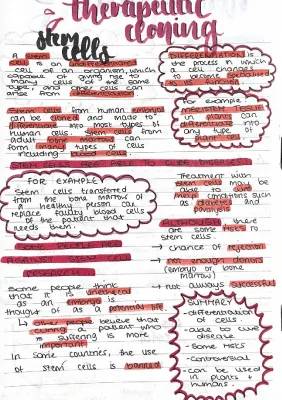 therapeutic
cloning
stem
cells
A stem
cell is an undifferentiated
cell of an organism, which
capable of giving rise to
many more cells of the same
type, and other cells can
arise from differentiation
DIFFERENTIATION is
the process in which
a cell changes
to become specialised
for example
MERISTEM TISSUE
in plants can
differentiate into
any type of
plant cell
Stem cells from human embryos
can be cloned and made to
differentiate into most types of
human cells. Stem cells from
adult bone marrow can
form many types of cells
including blood cells
FOR EXAMPLE
Stem cells transferred
from the bone marrow of
a healthy person can
replace faulty blood cells
of the patient that
needs them.
Treatment with
stem cells may be
able to cure
conditions such
as diabetes and
paralysis
ALTHOUGH there
are some risks to
stem cells
→ chance of rejection
→ not enough donors
(embryo or bone
marrow)
→ not always successful
SOME PEOPLE ARE
AGAINST STEM CELL
RESEARCH
Some people think
that it is unethical
as an embryo is
thought of as a potential life
↳ other people believe that
curing a patient who
is suffering is more
important
In some countries, the use
of stem cells is banned
SUMMARY
- differentiation of
cells
- able to cure
disease
- some risks
- controversial
- can be used
in plants +
humans.